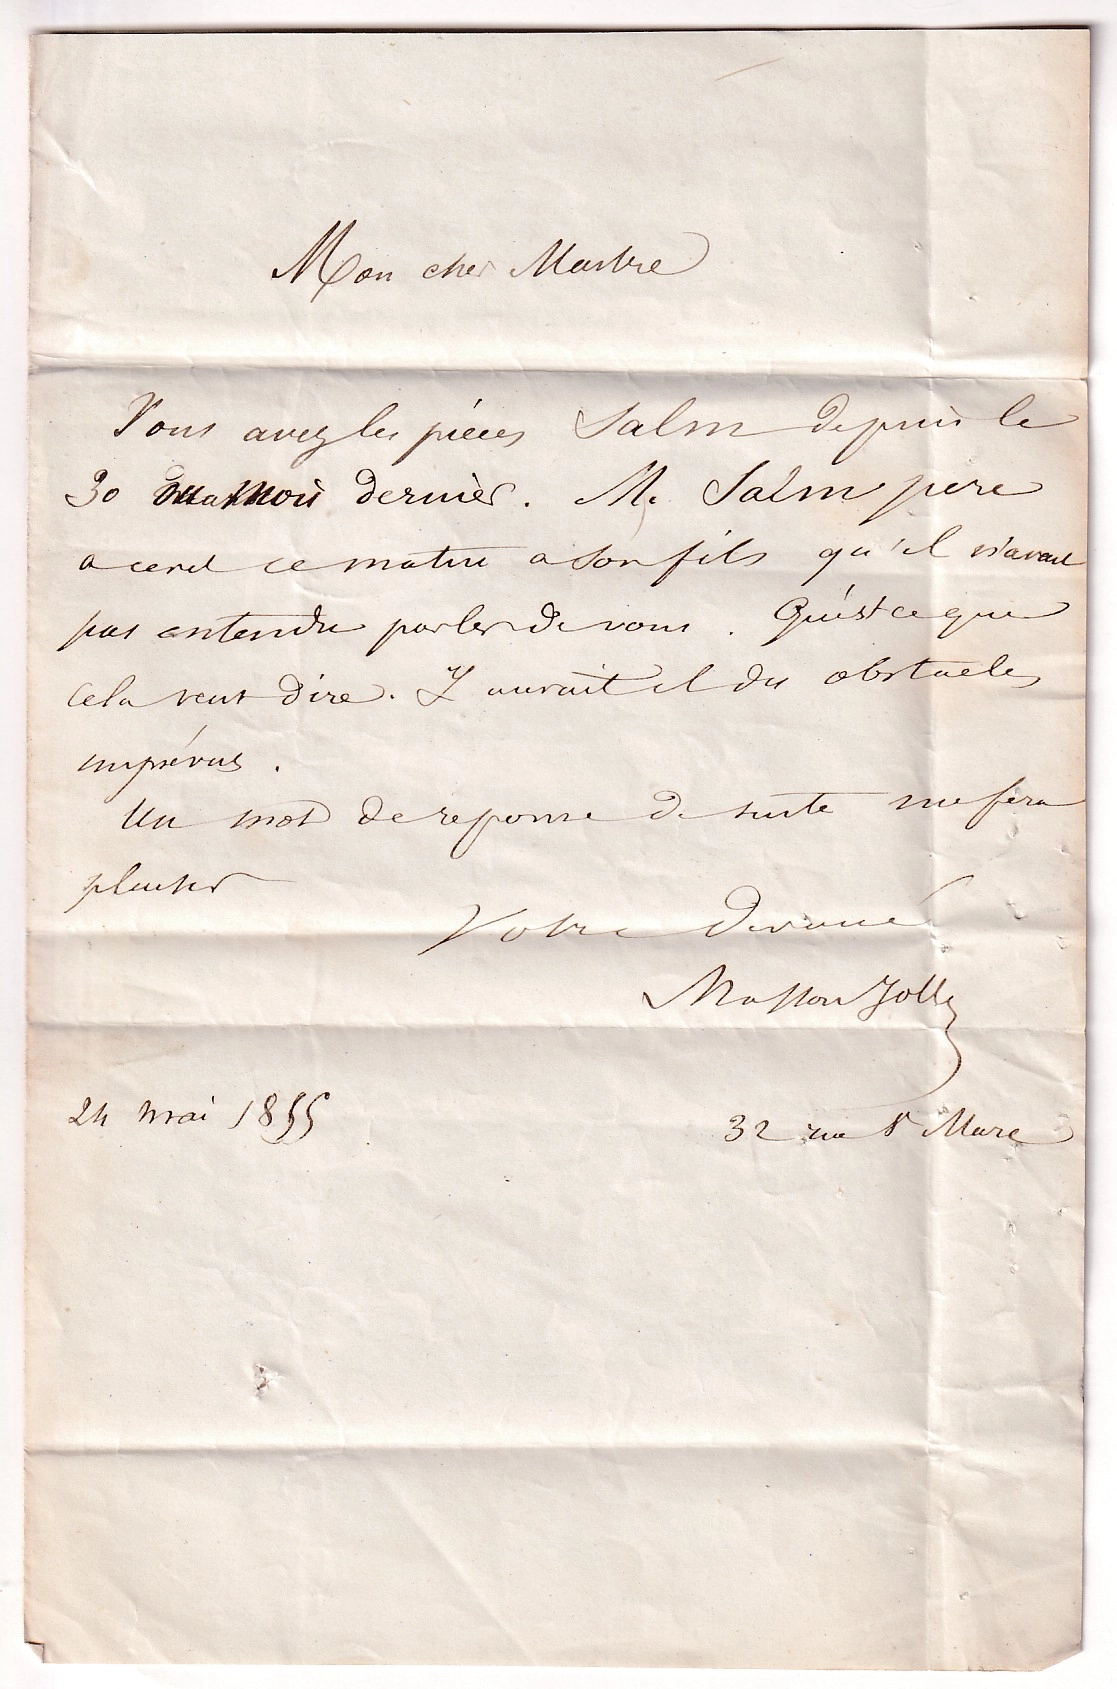 Mon cher Maitre
Vous avez les pièces Salm depuis le
30 du mois dernier. M. Salm pere
a ecrit ce matin a son fils qu'il n'avait
pas entendu parler de vous. Qu'est ce que
cela veut dire. Y aurait il des obstacles
imprévus.
Un mot de reponse de suite me fera
plaisir
Votre devoué
Masson Jolly
24 mai 1855
32 rue St Marc